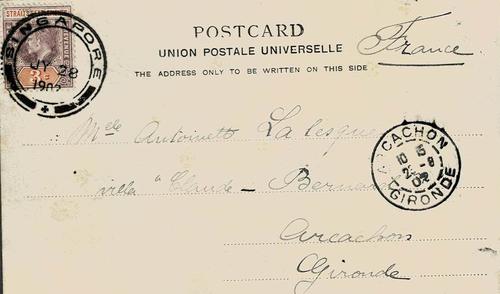 STRAITS SETTLEMENTS
SINGAPORE
JY 28
1902
POSTCARD
UNION POSTALE UNIVERSELLE
France
THE ADDRESS ONLY TO BE WRITTEN ON THIS SIDE
Melle Antoinette Lalesque
ARCACHON
10 15
8
02
GIRONDE
villa "Claude - Bernard
Arcachon
Gironde